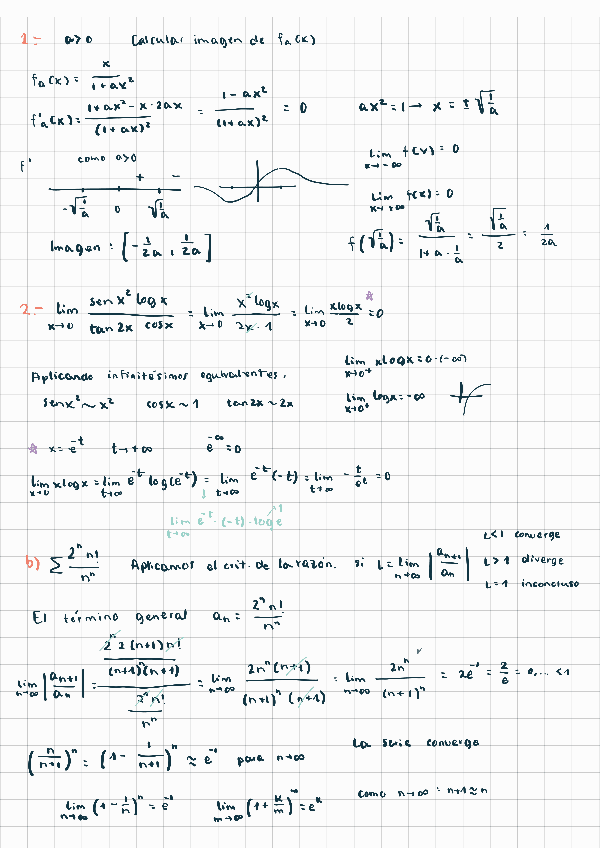 1:- a>0 Calcular imagen de f_a(x)
f_a(x) = x / (1+ax²)
f'_a(x) = (1+ax² - x·2ax) / (1+ax)² = (1-ax²) / (1+ax)² = 0 ax² = 1 → x = ±√(1/a)
f' como a>0
+ -
-√(1/a) 0 √(1/a)
lim x→-∞ f(x) = 0
lim x→+∞ f(x) = 0
f(√(1/a)) = √(1/a) / (1+a·1/a) = √(1/a) / 2 = 1/2a
Imagen : [-1/2a , 1/2a]
2:- lim x→0 (sen x² log x) / (tan 2x cos x) = lim x→0 (x² log x) / (2x·1) = lim x→0 (x log x) / 2 = 0 ☆
Aplicando infinitésimos equivalentes.
sen x² ~ x² cos x ~ 1 tan 2x ~ 2x
lim x→0⁺ x log x = 0·(-∞)
lim x→0⁺ log x = -∞
☆ x = e^-t t→+∞ e^-∞ = 0
lim x→0 x log x = lim t→∞ e^-t log(e^-t) = lim t→∞ e^-t (-t) = lim t→∞ -t/e^t = 0
↓
lim t→∞ e^-t · (-t) · log e ↗1
b) Σ 2ⁿ n! / nⁿ Aplicamos el crit. de la razón. si L = lim n→∞ |a_n+1 / a_n|
L<1 converge
L>1 diverge
L=1 inconcluso
El término general a_n = 2ⁿ n! / nⁿ
lim n→∞ |a_n+1 / a_n| = (2ⁿ 2 (n+1) n! / (n+1)ⁿ (n+1)) / (2ⁿ n! / nⁿ) = lim n→∞ 2nⁿ (n+1) / (n+1)ⁿ (n+1) = lim n→∞ 2nⁿ / (n+1)ⁿ = 2e⁻¹ = 2/e = 0,... <1
(n / n+1)ⁿ = (1 - 1/(n+1))ⁿ ≈ e⁻¹ para n→∞
La serie converge
lim n→∞ (1 - 1/n)ⁿ = e⁻¹ lim m→∞ (1 + k/m)^m = e^k
como n→∞ = n+1 ≈ n